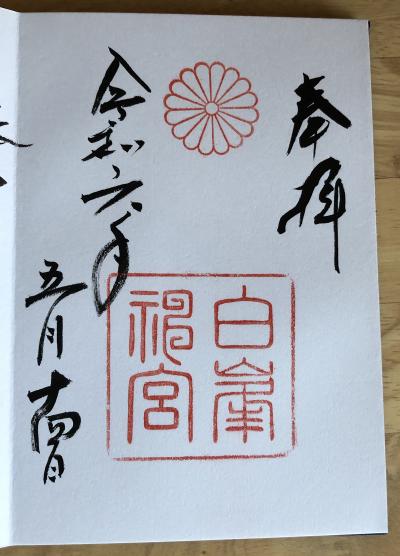 奉拝
白峯
神宮
令和六年
五月十四日